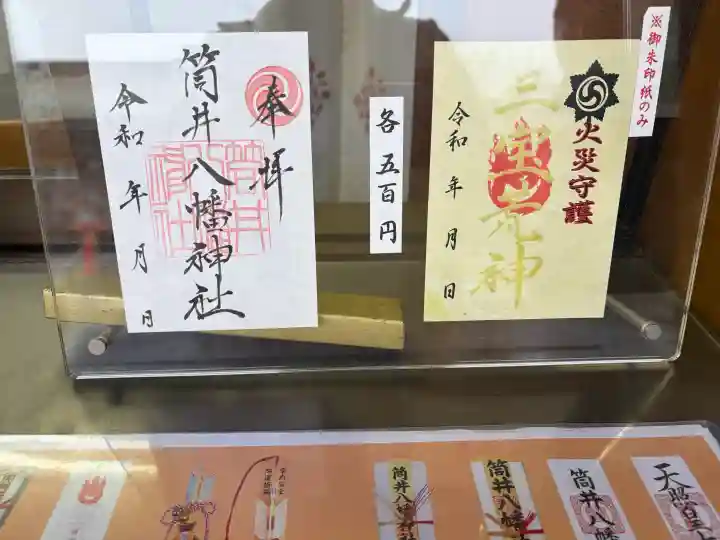 奉拝
筒井八幡神社
令和 年 月 日
各五百円
※御朱印紙のみ
火災守護
三宝荒神
令和 年 月 日
筒井八幡神社
筒井八幡
筒井八幡
天照皇